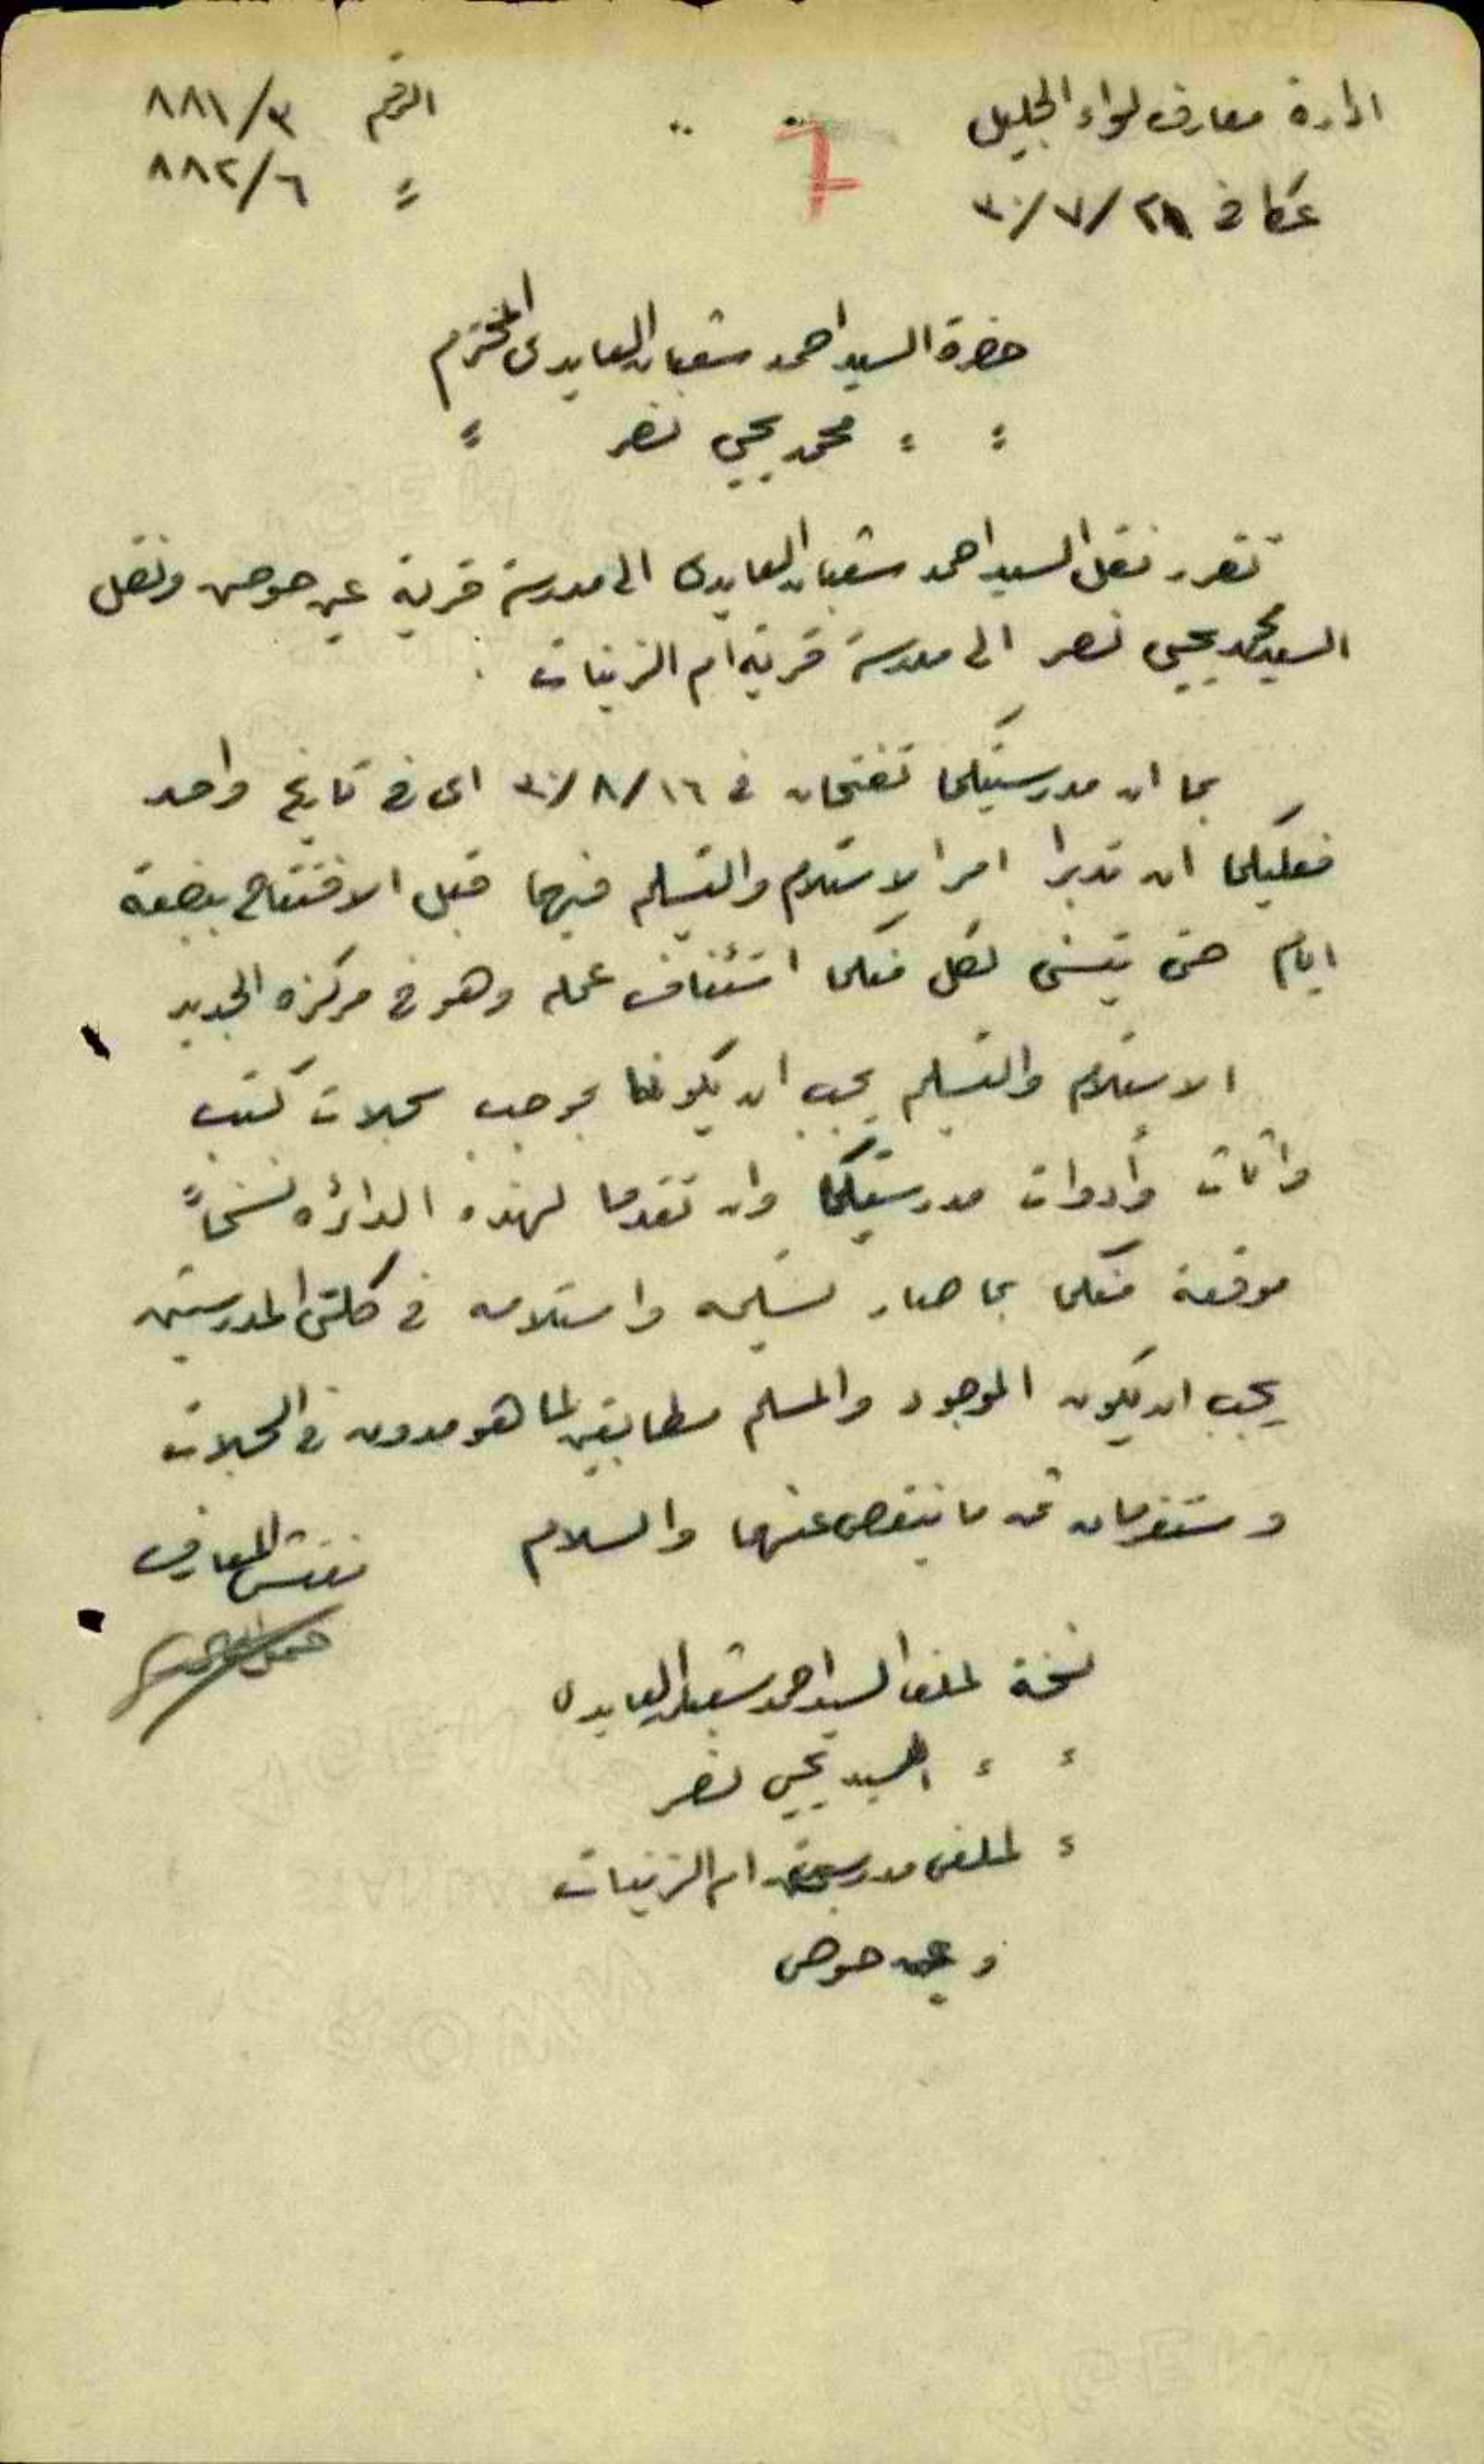 ادارة معارف لواء الجليل    الرقم ٨٨١/٣
عكا في ٣٠/٧/٢١    = ٨٨٢/٦
7
حضرة السيد احمد شعبان العايدى المحترم
= = محمد يحيى نصر =
تقرر نقل السيد احمد شعبان العايدى الى مدرسة قرية عين حوض ونقل
السيد محمد يحيى نصر الى مدرسة قرية ام الزينات .
بما ان مدرستيكما تفتحان في ٣٠/٨/١٦ اى في تاريخ واحد
فعليكما ان تدبرا امر الاستلام والتسليم فيهما قبل الافتتاح ببضعة
ايام حتى يتسنى لكل منكما استئناف عمله وهو في مركزه الجديد
الاستلام والتسليم يجب ان يكونا بموجب سجلات كتب
واثاث وأدوات مدرستيكما وان تقدما لهذه الدائره نسخاً
موقعة منكما بما صار تسليمه واستلامه في كلتى المدرستين
يجب ان يكون الموجود والمسلم مطابقين لما هو مدون في السجلات
وستغرمان ثمن ما ينقص عنها والسلام
مفتش المعارف
نسخة لملف السيد احمد شعبان العايدى
= = السيد يحيى نصر
= لملفى مدرستى ام الزينات
وعين حوض